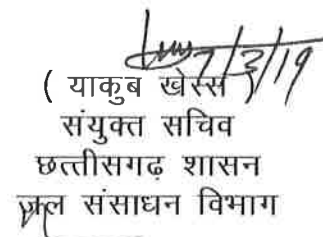 7/3/19
( याकुब खेस्स )
संयुक्त सचिव
छत्तीसगढ़ शासन
जल संसाधन विभाग